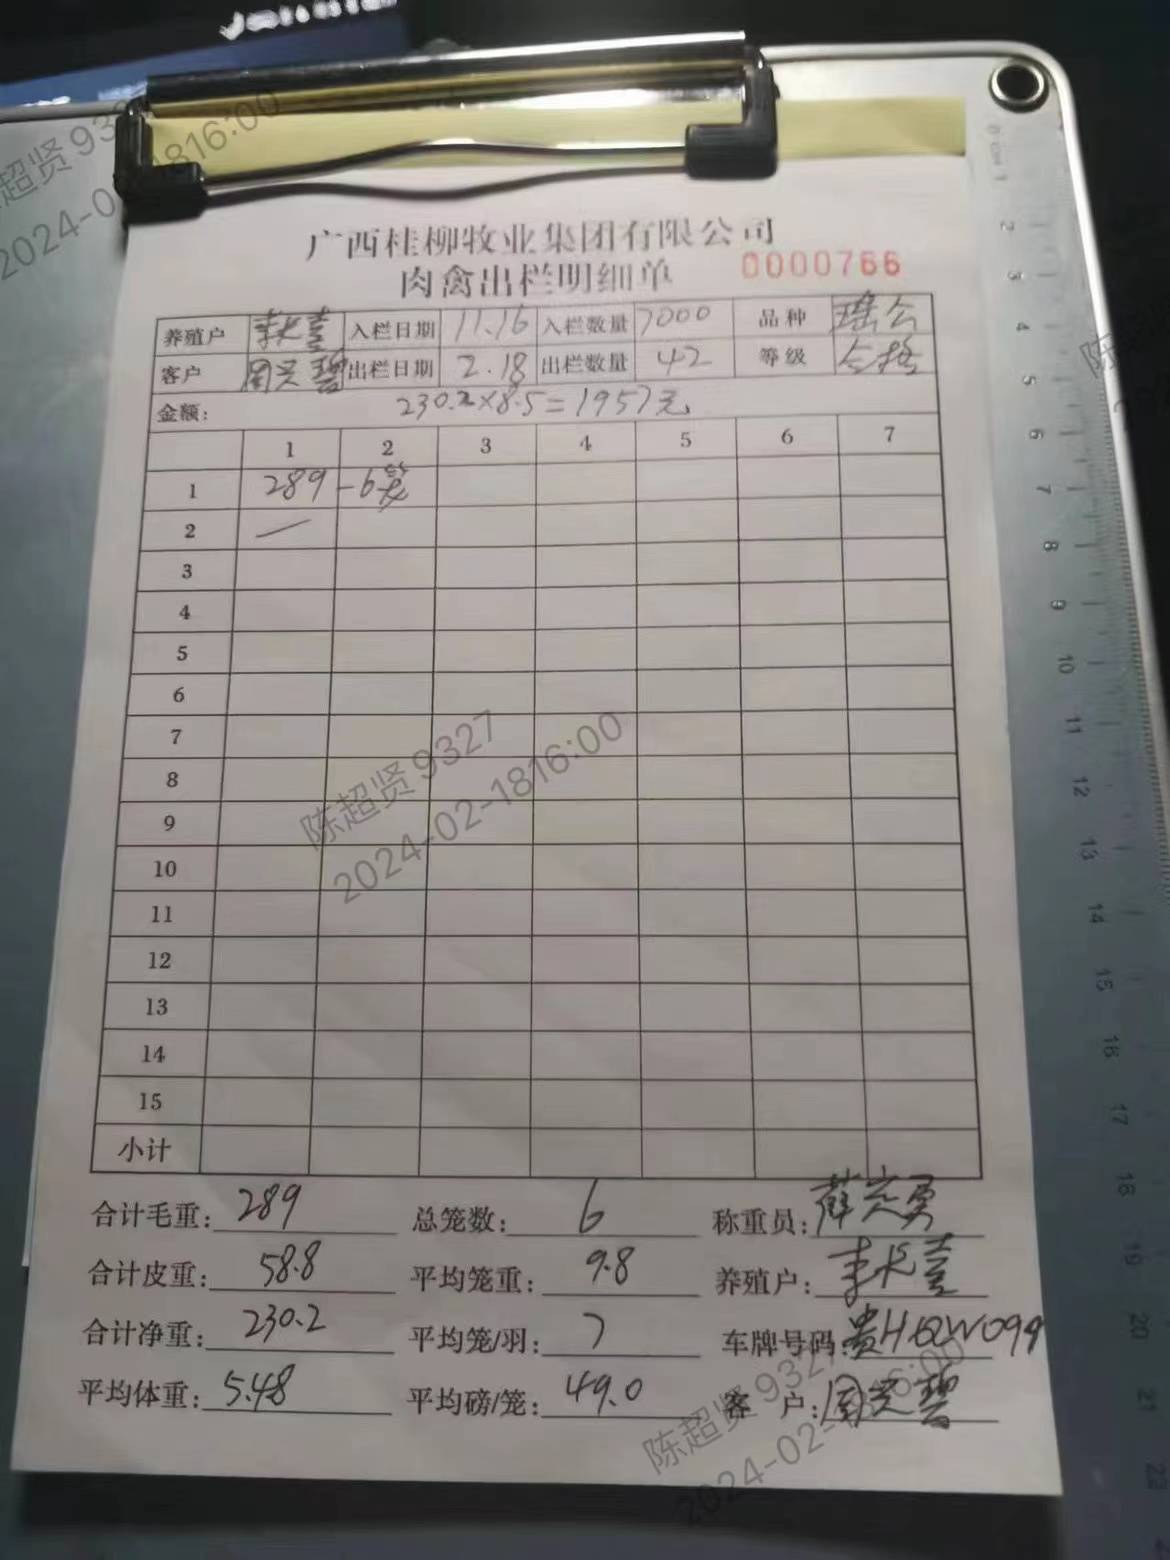 广西桂柳牧业集团有限公司
肉禽出栏明细单 0000766
养殖户 李长 入栏日期 11.16 入栏数量 7000 品种 瑶公
客户 周 碧 出栏日期 2.18 出栏数量 42 等级 合格
金额: 230.2×8.5=1957元
1 2 3 4 5 6 7
1 289 -6笼
2 —
3
4
5
6
7
8
9
10
11
12
13
14
15
小计
合计毛重: 289 总笼数: 6 称重员: 薛 勇
合计皮重: 58.8 平均笼重: 9.8 养殖户: 李长
合计净重: 230.2 平均笼/羽: 7 车牌号码: 贵H
平均体重: 5.48 平均磅/笼: 49.0 客 户: 周 碧
陈超贤 9327
2024-02-1816:00
陈超贤 9327
2024-02-1816:00
陈超贤 9327
2024-02-1816:00
0 cm 1 2 3 4 5 6 7 8 9 10 11 12 13 14 15 16 17 18 19 20 21 22